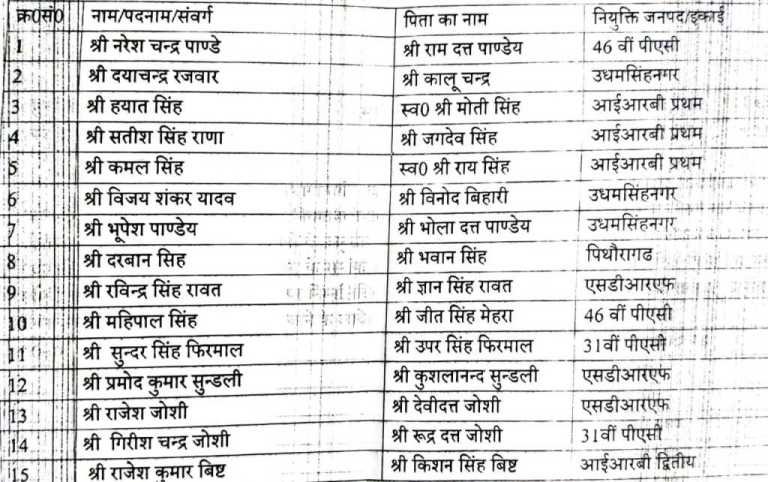 क्र0सं0 नाम/पदनाम/संवर्ग पिता का नाम नियुक्ति जनपद/इकाई
1 श्री नरेश चन्द्र पाण्डे श्री राम दत्त पाण्डेय 46 वीं पीएसी
2 श्री दयाचन्द्र रजवार श्री कालू चन्द्र उधमसिंहनगर
3 श्री हयात सिंह स्व0 श्री मोती सिंह आईआरबी प्रथम
4 श्री सतीश सिंह राणा श्री जगदेव सिंह आईआरबी प्रथम
5 श्री कमल सिंह स्व0 श्री राय सिंह आईआरबी प्रथम
6 श्री विजय शंकर यादव श्री विनोद बिहारी उधमसिंहनगर
7 श्री भूपेश पाण्डेय श्री भोला दत्त पाण्डेय उधमसिंहनगर
8 श्री दरबान सिह श्री भवान सिंह पिथौरागढ
9 श्री रविन्द्र सिंह रावत श्री ज्ञान सिंह रावत एसडीआरएफ
10 श्री महिपाल सिंह श्री जीत सिंह मेहरा 46 वीं पीएसी
11 श्री सुन्दर सिंह फिरमाल श्री उपर सिंह फिरमाल 31वीं पीएसी
12 श्री प्रमोद कुमार सुन्डली श्री कुशलानन्द सुन्डली एसडीआरएफ
13 श्री राजेश जोशी श्री देवीदत्त जोशी एसडीआरएफ
14 श्री गिरीश चन्द्र जोशी श्री रूद्र दत्त जोशी 31वीं पीएसी
15 श्री राजेश कुमार बिष्ट श्री किशन सिंह बिष्ट आईआरबी द्वितीय